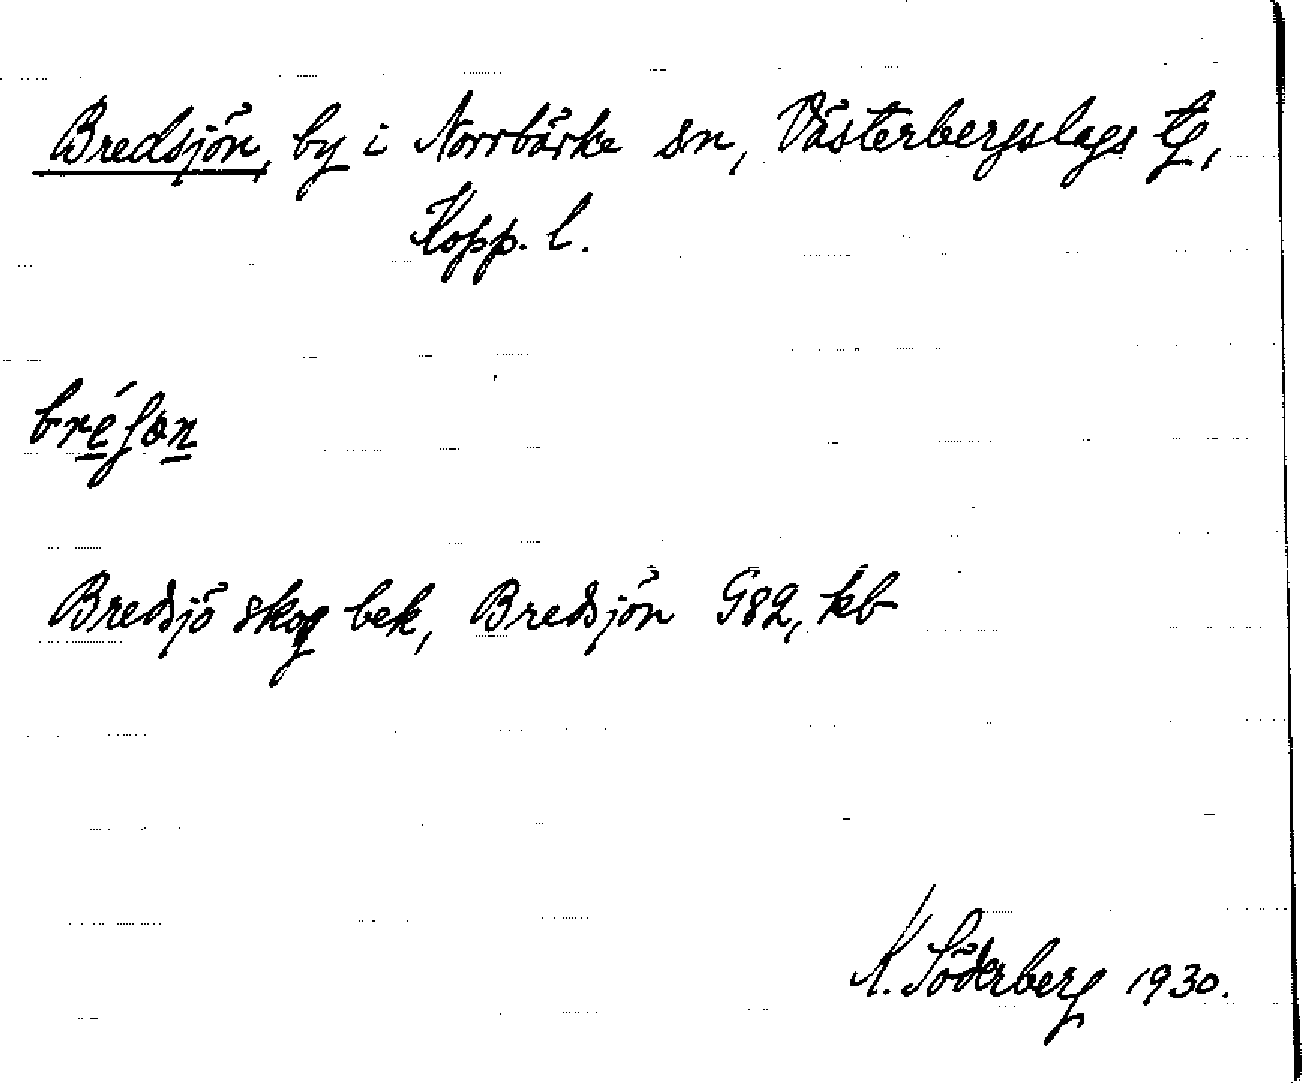 Bredsjön, by i Norrbärke sn, Västerbergslags tg,
Kopp. l.
bréʃøn
Bredsjö skog bek, Bredsjön G82, kb
K. Söderberg 1930.